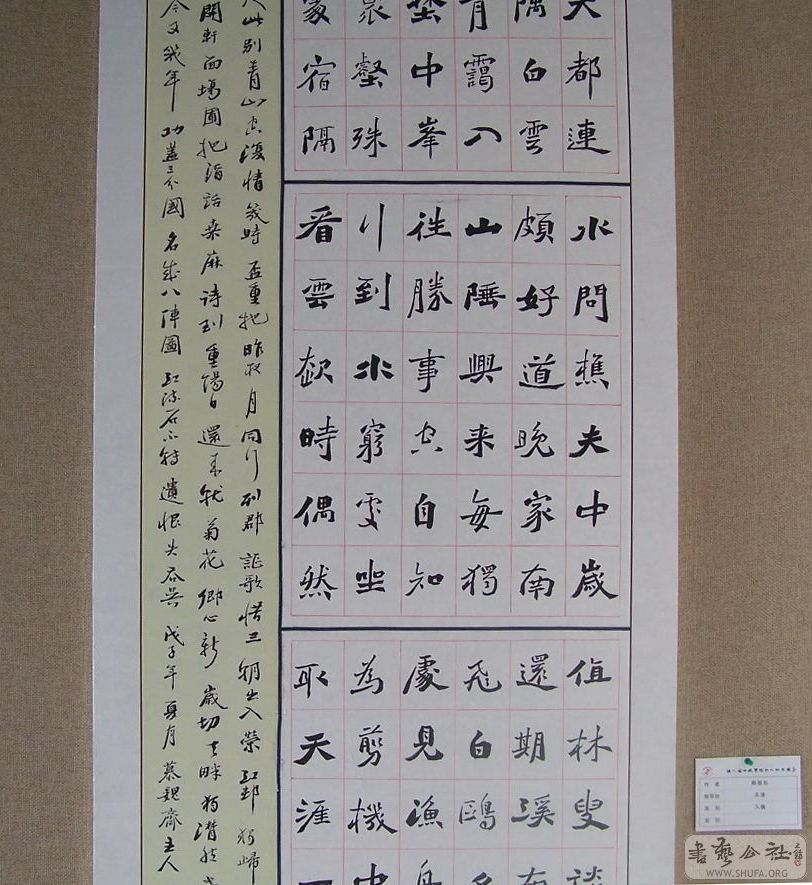 天都連
隅白雲
青靄入
埜中峯
眾壑殊
處宿隔
水問樵夫中歲
頗好道晚家南
山陲興来每獨
往勝事空自知
行到水窮處坐
看雲起時偶然
值林叟談
還期溪
飛白鷗
處見漁舟
為剪機中
取天涯一
人此別青山空復情幾時盃重把昨夜月同行列郡謳歌惜三朝出入榮江邨獨歸
開軒面場圃把酒話桑麻詩到重陽日還來就菊花鄉心新歲切天畔獨潸然
今又幾年功蓋三分國名成八陣圖江流石不轉遺恨失吞吳戊子年夏月慕魏齋主人
書藝公社
WWW.SHUFA.ORG